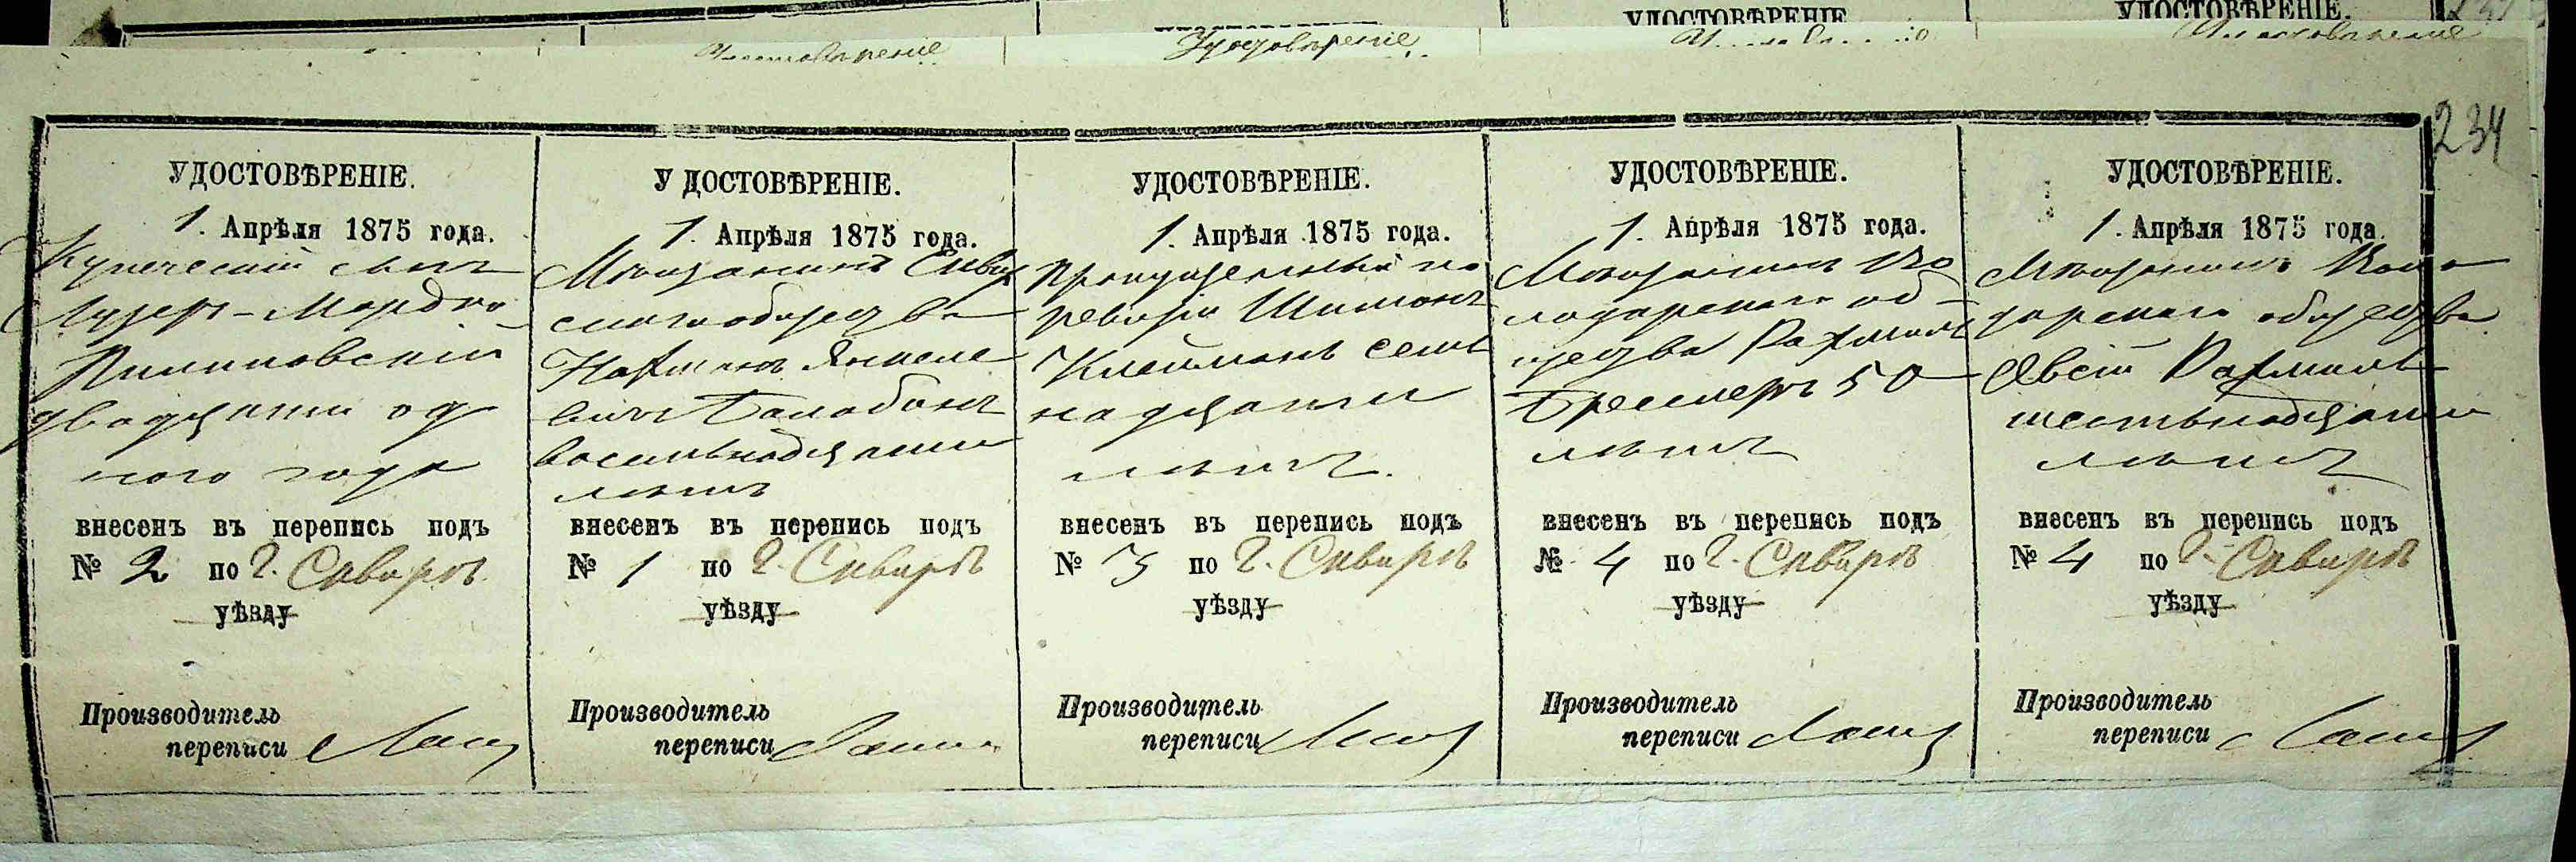 УДОСТОВѢРЕНІЕ
УДОСТОВѢРЕНІЕ.
Удостовѣреніе
Удостовѣреніе
Удостовѣреніе
234
УДОСТОВѢРЕНІЕ.
1. Апрѣля 1875 года.
Купеческій сынъ
Лузеръ-Мордко
двадцати од
ного года
внесенъ въ перепись подъ
№ 2 по г. Сквирѣ
уѣзду
Производитель
переписи
УДОСТОВѢРЕНІЕ.
1. Апрѣля 1875 года.
Мѣщанинъ Сквир
скаго общества
Нахманъ Янкеле
вичъ Балабанъ
восемьнадцати
лѣтъ
внесенъ въ перепись подъ
№ 1 по г. Сквирѣ
уѣзду
Производитель
переписи
УДОСТОВѢРЕНІЕ.
1. Апрѣля 1875 года.
пропущенный по
ревизіи Шимонъ
Клейманъ семь
надцати
лѣтъ.
внесенъ въ перепись подъ
№ 3 по г. Сквирѣ
уѣзду
Производитель
переписи
УДОСТОВѢРЕНІЕ.
1. Апрѣля 1875 года.
Мѣщанинъ Во
лодарскаго об-
щества Рахмиль
Бреслеръ 50
лѣтъ
внесенъ въ перепись подъ
№ 4 по г. Сквирѣ
уѣзду
Производитель
переписи
УДОСТОВѢРЕНІЕ.
1. Апрѣля 1875 года.
Мѣщанинъ Воло
дарскаго общества
шестьнадцати
лѣтъ
внесенъ въ перепись подъ
№ 4 по г. Сквирѣ
уѣзду
Производитель
переписи